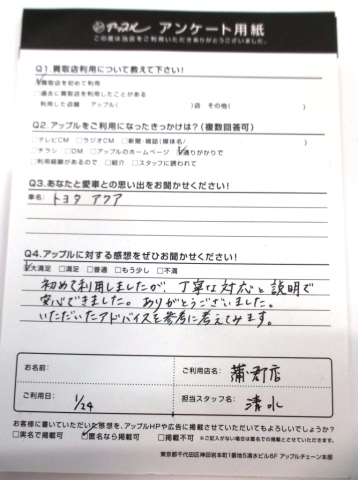 アップル アンケート用紙
この度は当店をご利用いただきありがとうございました。
Q1.買取店利用について教えて下さい!
☑買取店を初めて利用
□過去に買取店を利用したことがある
利用した店舗 アップル( )店 その他( )
Q2.アップルをご利用になったきっかけは?(複数回答可)
□テレビCM □ラジオCM □新聞・雑誌(媒体名/ )
□チラシ □DM □アップルのホームページ ☑通りがかりで
□利用経験があるので □紹介 □スタッフに誘われて
Q3.あなたと愛車との思い出をお聞かせください!
車名/ トヨタ アクア
Q4.アップルに対する感想をぜひお聞かせください!
☑大満足 □満足 □普通 □もう少し □不満
初めて利用しましたが、丁寧な対応と説明で
安心できました。ありがとうございました。
いただいたアドバイスを参考に考えてみます。
お名前:
ご利用店名: 蒲郡店
ご利用日: 1/24
担当スタッフ名: 清水
お客様に書いていただいた感想を、アップルHPや広告に掲載させていただいてもよろしいでしょうか?
□実名で掲載可 ☑匿名なら掲載可 □掲載不可 ※ご記入がない場合は匿名での掲載とさせていただきます。
東京都千代田区神田岩本町1番地5清水ビル6F アップルチェーン本部